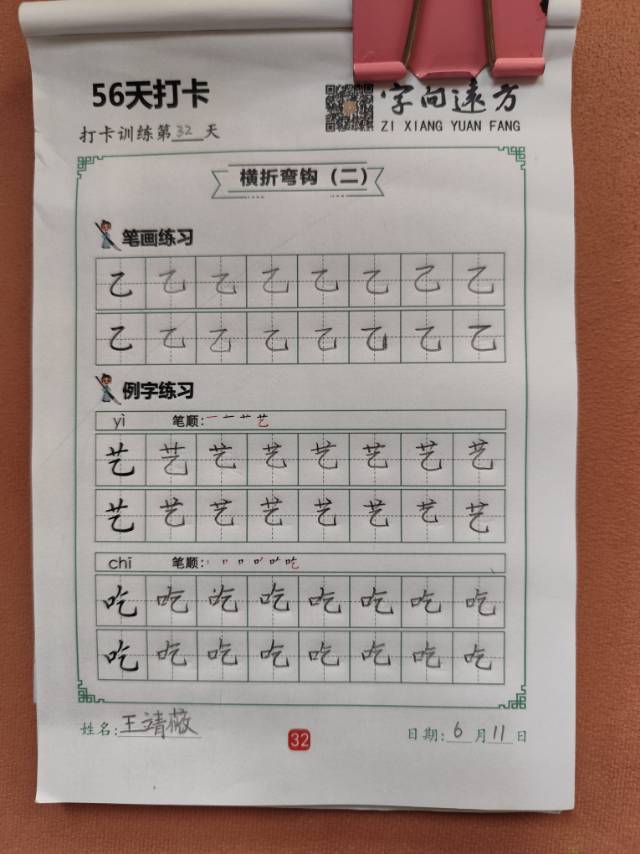 56天打卡
字向遠方
打卡训练第32天
ZI XIANG YUAN FANG
横折弯钩（二）
笔画练习
乙 乙 乙 乙 乙 乙 乙 乙
乙 乙 乙 乙 乙 乙 乙 乙
例字练习
yì 笔顺:一 艹 艺
艺 艺 艺 艺 艺 艺 艺 艺
艺 艺 艺 艺 艺 艺 艺 艺
chī 笔顺: 吃
吃 吃 吃 吃 吃 吃 吃 吃
吃 吃 吃 吃 吃 吃 吃 吃
姓名:王靖薇
32
日期:6月11日